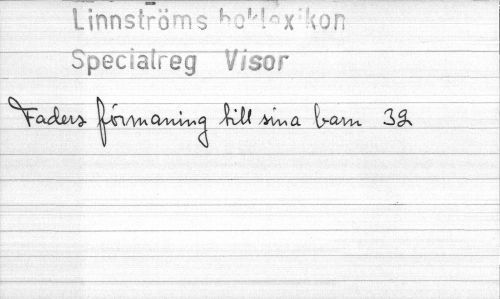 Linnströms boklexikon
Specialreg Visor
Faders förmaning till sina barn 32